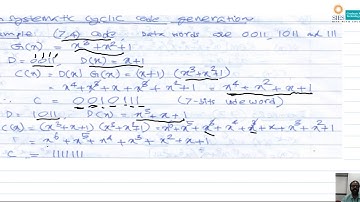 systematic cyclic code generation
(7,4) code Data words are 0011, 1011 and 111
G(x) = x³+x²+1
D = 0011 D(x) = x+1
C(x) = D(x) G(x) = (x+1) (x³+x²+1)
= x⁴+x³+x+x³+x²+1 = x⁴+x²+x+1
∴ C = 0010111 (7-bits codeword)
D = 1011 D(x) = x³+x+1
C(x) = (x³+x+1) (x³+x²+1) = x⁶+x⁵+x³+x⁴+x³+x+x³+x²+1
= x⁶+x⁵+x⁴+x³+x²+x+1
C = 1111111